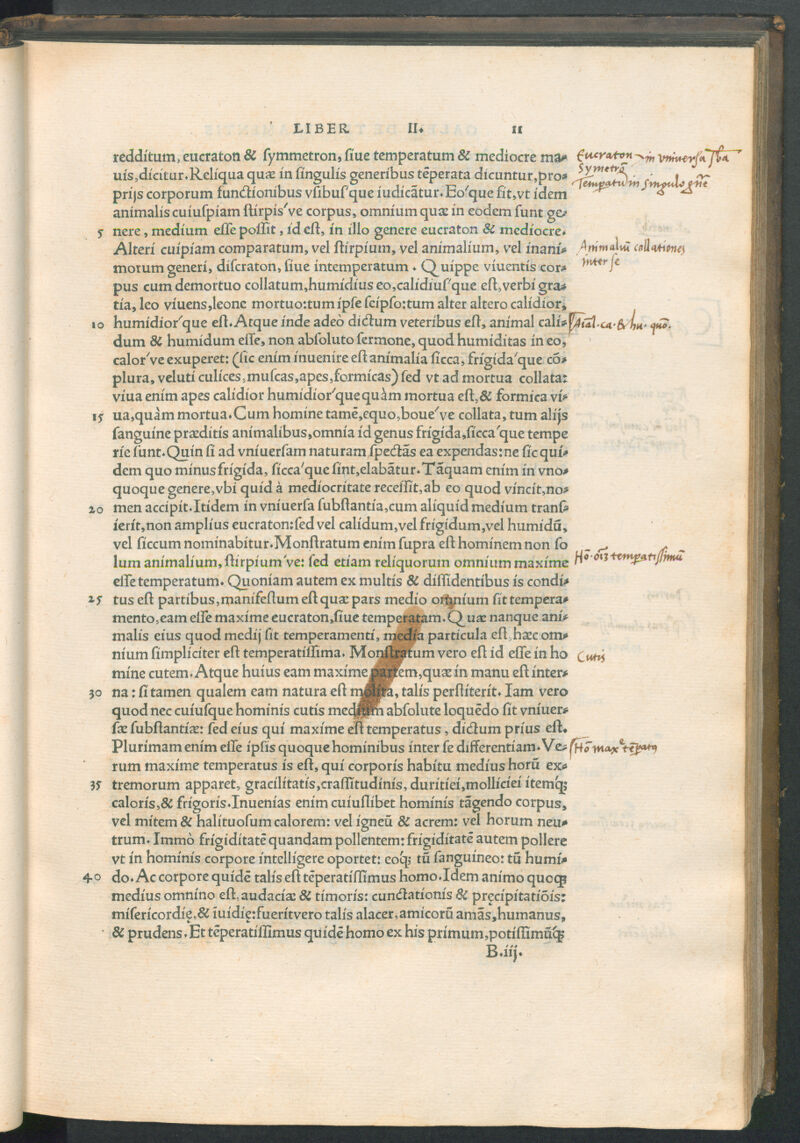 LIBER II. 11
redditum, eucraton & symmetron, siue temperatum & mediocre ma-
uis, dicitur. Reliqua quæ in singulis generibus tēperata dicuntur, pro-
prijs corporum functionibus vsibus'que iudicātur. Eo'que fit, vt idem
animalis cuiuspiam stirpis've corpus, omnium quæ in eodem sunt ge-
5 nere, medium esse possit, id est, in illo genere eucraton & mediocre.
Alteri cuipiam comparatum, vel stirpium, vel animalium, vel inani-
morum generi, discraton, siue intemperatum. Quippe viuentis cor-
pus cum demortuo collatum, humidius eo, calidius'que est, verbi gra-
tia, leo viuens, leone mortuo: tum ipse seipso: tum alter altero calidior,
10 humidior'que est. Atque inde adeò dictum veteribus est, animal cali-
dum & humidum esse, non absoluto sermone, quod humiditas in eo,
calor've exuperet: (sic enim inuenire est animalia sicca, frigida'que cō-
plura, veluti culices, muscas, apes, formicas) sed vt ad mortua collata:
viua enim apes calidior humidior'que quàm mortua est, & formica vi-
15 ua, quàm mortua. Cum homine tamē, equo, boue've collata, tum alijs
sanguine præditis animalibus, omnia id genus frigida, sicca'que tempe
rie sunt. Quin si ad vniuersam naturam spectās ea expendas: ne sic qui-
dem quo minus frigida, sicca'que sint, elabātur. Tāquam enim in vno-
quoque genere, vbi quid à mediocritate recessit, ab eo quod vincit, no-
20 men accipit. Itidem in vniuersa substantia, cum aliquid medium trans-
ierit, non amplius eucraton: sed vel calidum, vel frigidum, vel humidū,
vel siccum nominabitur. Monstratum enim supra est hominem non so
lum animalium, stirpium've: sed etiam reliquorum omnium maxime
esse temperatum. Quoniam autem ex multis & dissidentibus is condi-
25 tus est partibus, manifestum est quæ pars medio omnium sit tempera-
mento, eam esse maxime eucraton, siue temperatam. Quæ nanque ani-
malis eius quod medij sit temperamenti, media particula est, hæc om-
nium simpliciter est temperatissima. Monstratum vero est id esse in ho
mine cutem. Atque huius eam maxime partem, quæ in manu est inter-
30 na: si tamen qualem eam natura est molita, talis perstiterit. Iam vero
quod nec cuiusque hominis cutis medium absolute loquēdo sit vniuer-
sæ substantiæ: sed eius qui maxime est temperatus, dictum prius est.
Plurimam enim esse ipsis quoque hominibus inter se differentiam. Ve-
rum maxime temperatus is est, qui corporis habitu medius horū ex-
35 tremorum apparet, gracilitatis, crassitudinis, duritiei, molliciei itemq;
caloris, & frigoris. Inuenias enim cuiuslibet hominis tāgendo corpus,
vel mitem & halituosum calorem: vel igneū & acrem: vel horum neu-
trum. Immò frigiditatē quandam pollentem: frigiditatē autem pollere
vt in hominis corpore intelligere oportet: eoq; tū sanguineo: tū humi-
40 do. Ac corpore quidē talis est tēperatissimus homo. Idem animo quoq;
medius omnino est, audaciæ & timoris: cunctationis & pręcipitatiōis:
misericordię, & iuidię: fuerit vero talis alacer, amicorū amās, humanus,
& prudens. Et tēperatissimus quidē homo ex his primum, potissimūq;
B.iij.
Eucraton in vniuersa sba
Symetrō
Temperatū in singulo gñe
Animaliū collationes
inter se
Aīal. ca. & hu. quō.
Hō. oīz temperatissimū
Cutis
Hō max.e tēperatus